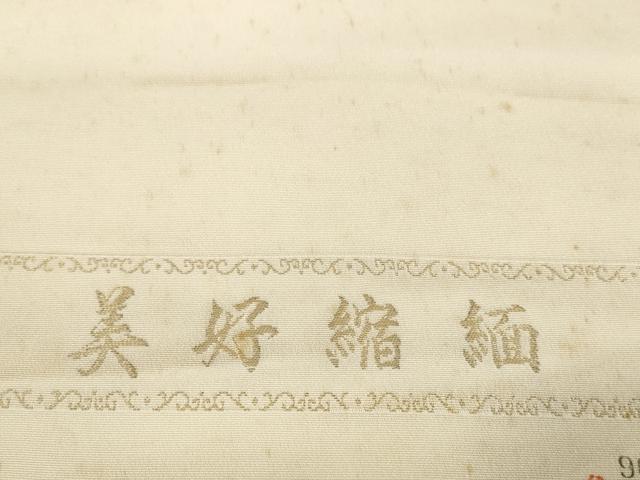 美好縮緬